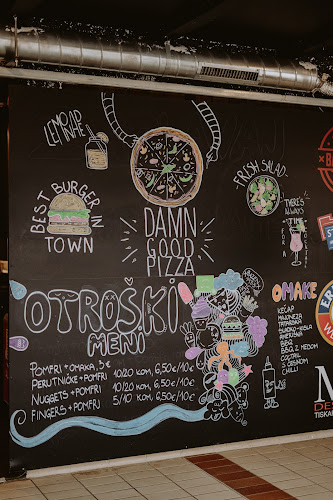 LEMONADE
BEST BURGER IN
TOWN
DAMN
GOOD
PIZZA
FRESH SALAD
THERE'S
ALWAYS
TIME
FOR A
OTROŠKI
MENI
POMFRI + OMAKA, 5€
PERUTNIČKE + POMFRI 10/20 KOM, 6,50€/10€
NUGGETS + POMFRI 10/20 KOM, 6,50€/10€
FINGERS + POMFRI 5/10 KOM, 6,50€/10€
OMAKE
KEČAP
MAJONEZA
TATARSKA
SLADKO-KISLA
AMERIŠKA
BBQ
BBQ Z MEDOM
COCTAIL
S ČESNOM
CHILLI
M
DES
TISKAR